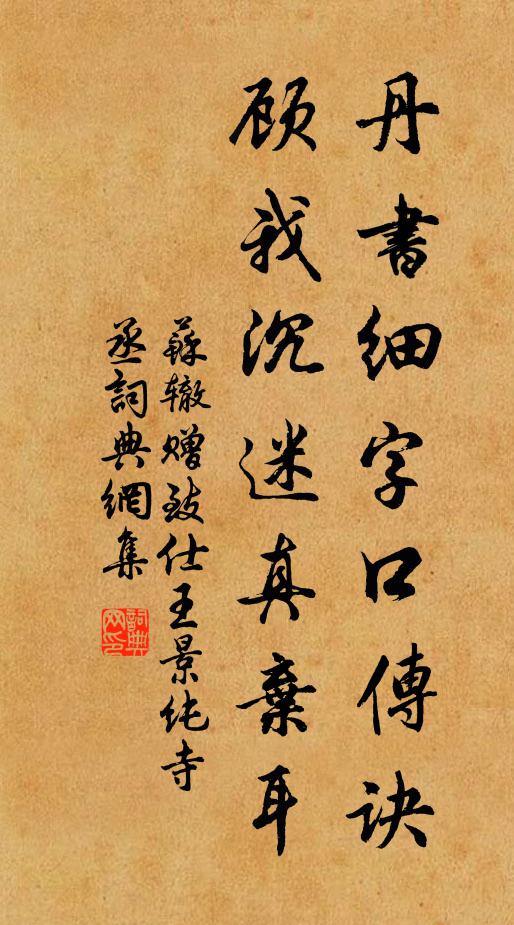 丹書细字口傳诀
顾我沉迷真棄耳
蘇辙赠致仕王景纯寺
丞詞典網集
詞典
网印